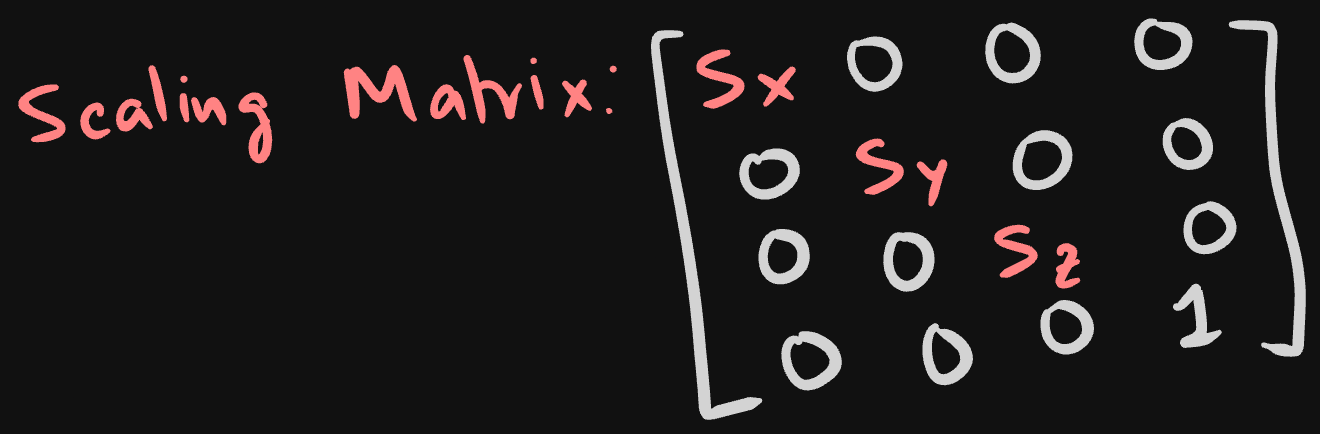 Scaling Matrix: Sx 0 0 0
0 Sy 0 0
0 0 Sz 0
0 0 0 1